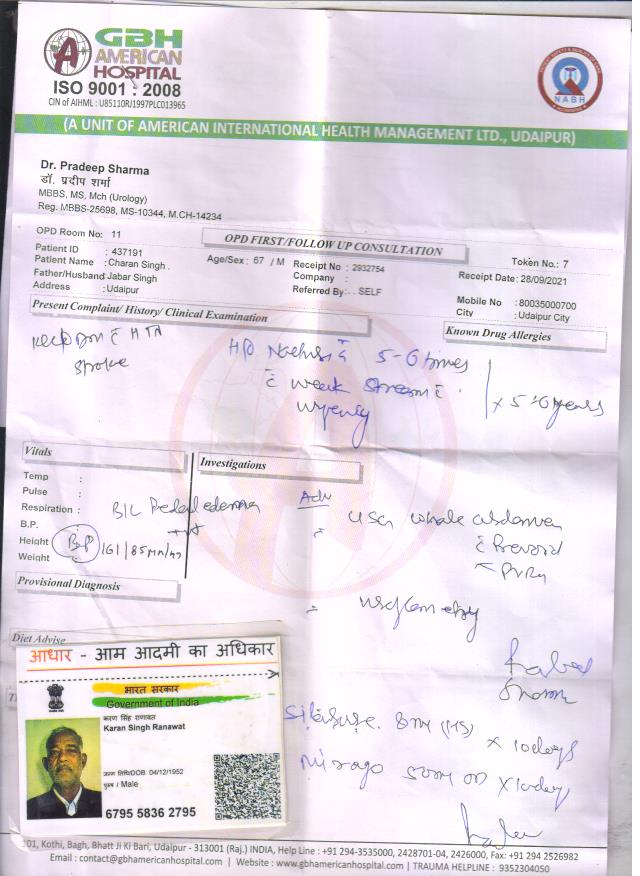 GBH
AMERICAN
HOSPITAL
ISO 9001 : 2008
CIN of AIHML : U85110RJ1997PLC013965
NABH
(A UNIT OF AMERICAN INTERNATIONAL HEALTH MANAGEMENT LTD., UDAIPUR)
Dr. Pradeep Sharma
डॉ. प्रदीप शर्मा
MBBS, MS, Mch (Urology)
Reg. MBBS-25698, MS-10344, M.CH-14234
OPD Room No: 11
OPD FIRST/FOLLOW UP CONSULTATION
Token No.: 7
Patient ID : 437191
Age/Sex : 67 / M
Receipt No : 2932754
Receipt Date: 28/09/2021
Patient Name : Charan Singh .
Company :
Father/Husband : Jabar Singh
Referred By: . . SELF
Mobile No : 80035000700
Address : Udaipur
City : Udaipur City
Present Complaint/ History/ Clinical Examination
Known Drug Allergies
HTN
stroke
H/O 5-6 times
weak stream
urgency
x 5-6 years
Vitals
Investigations
Temp :
Pulse :
Respiration :
B.P. :
Height :
Weight :
B/L Pedal edema
BP 161/85 mm/
Adv
USG whole abdomen
PVRU
uroflometry
Provisional Diagnosis
Diet Advise
आधार - आम आदमी का अधिकार
भारत सरकार
Government of India
करण सिंह राणावत
Karan Singh Ranawat
जन्म तिथि/DOB: 04/12/1952
पुरुष / Male
6795 5836 2795
8mg (HS) x 10days
50mg OD x 10day
101, Kothi, Bagh, Bhatt Ji Ki Bari, Udaipur - 313001 (Raj.) INDIA, Help Line : +91 294-3535000, 2428701-04, 2426000, Fax: +91 294 2526982
Email : contact@gbhamericanhospital.com | Website : www.gbhamericanhospital.com | TRAUMA HELPLINE : 9352304050